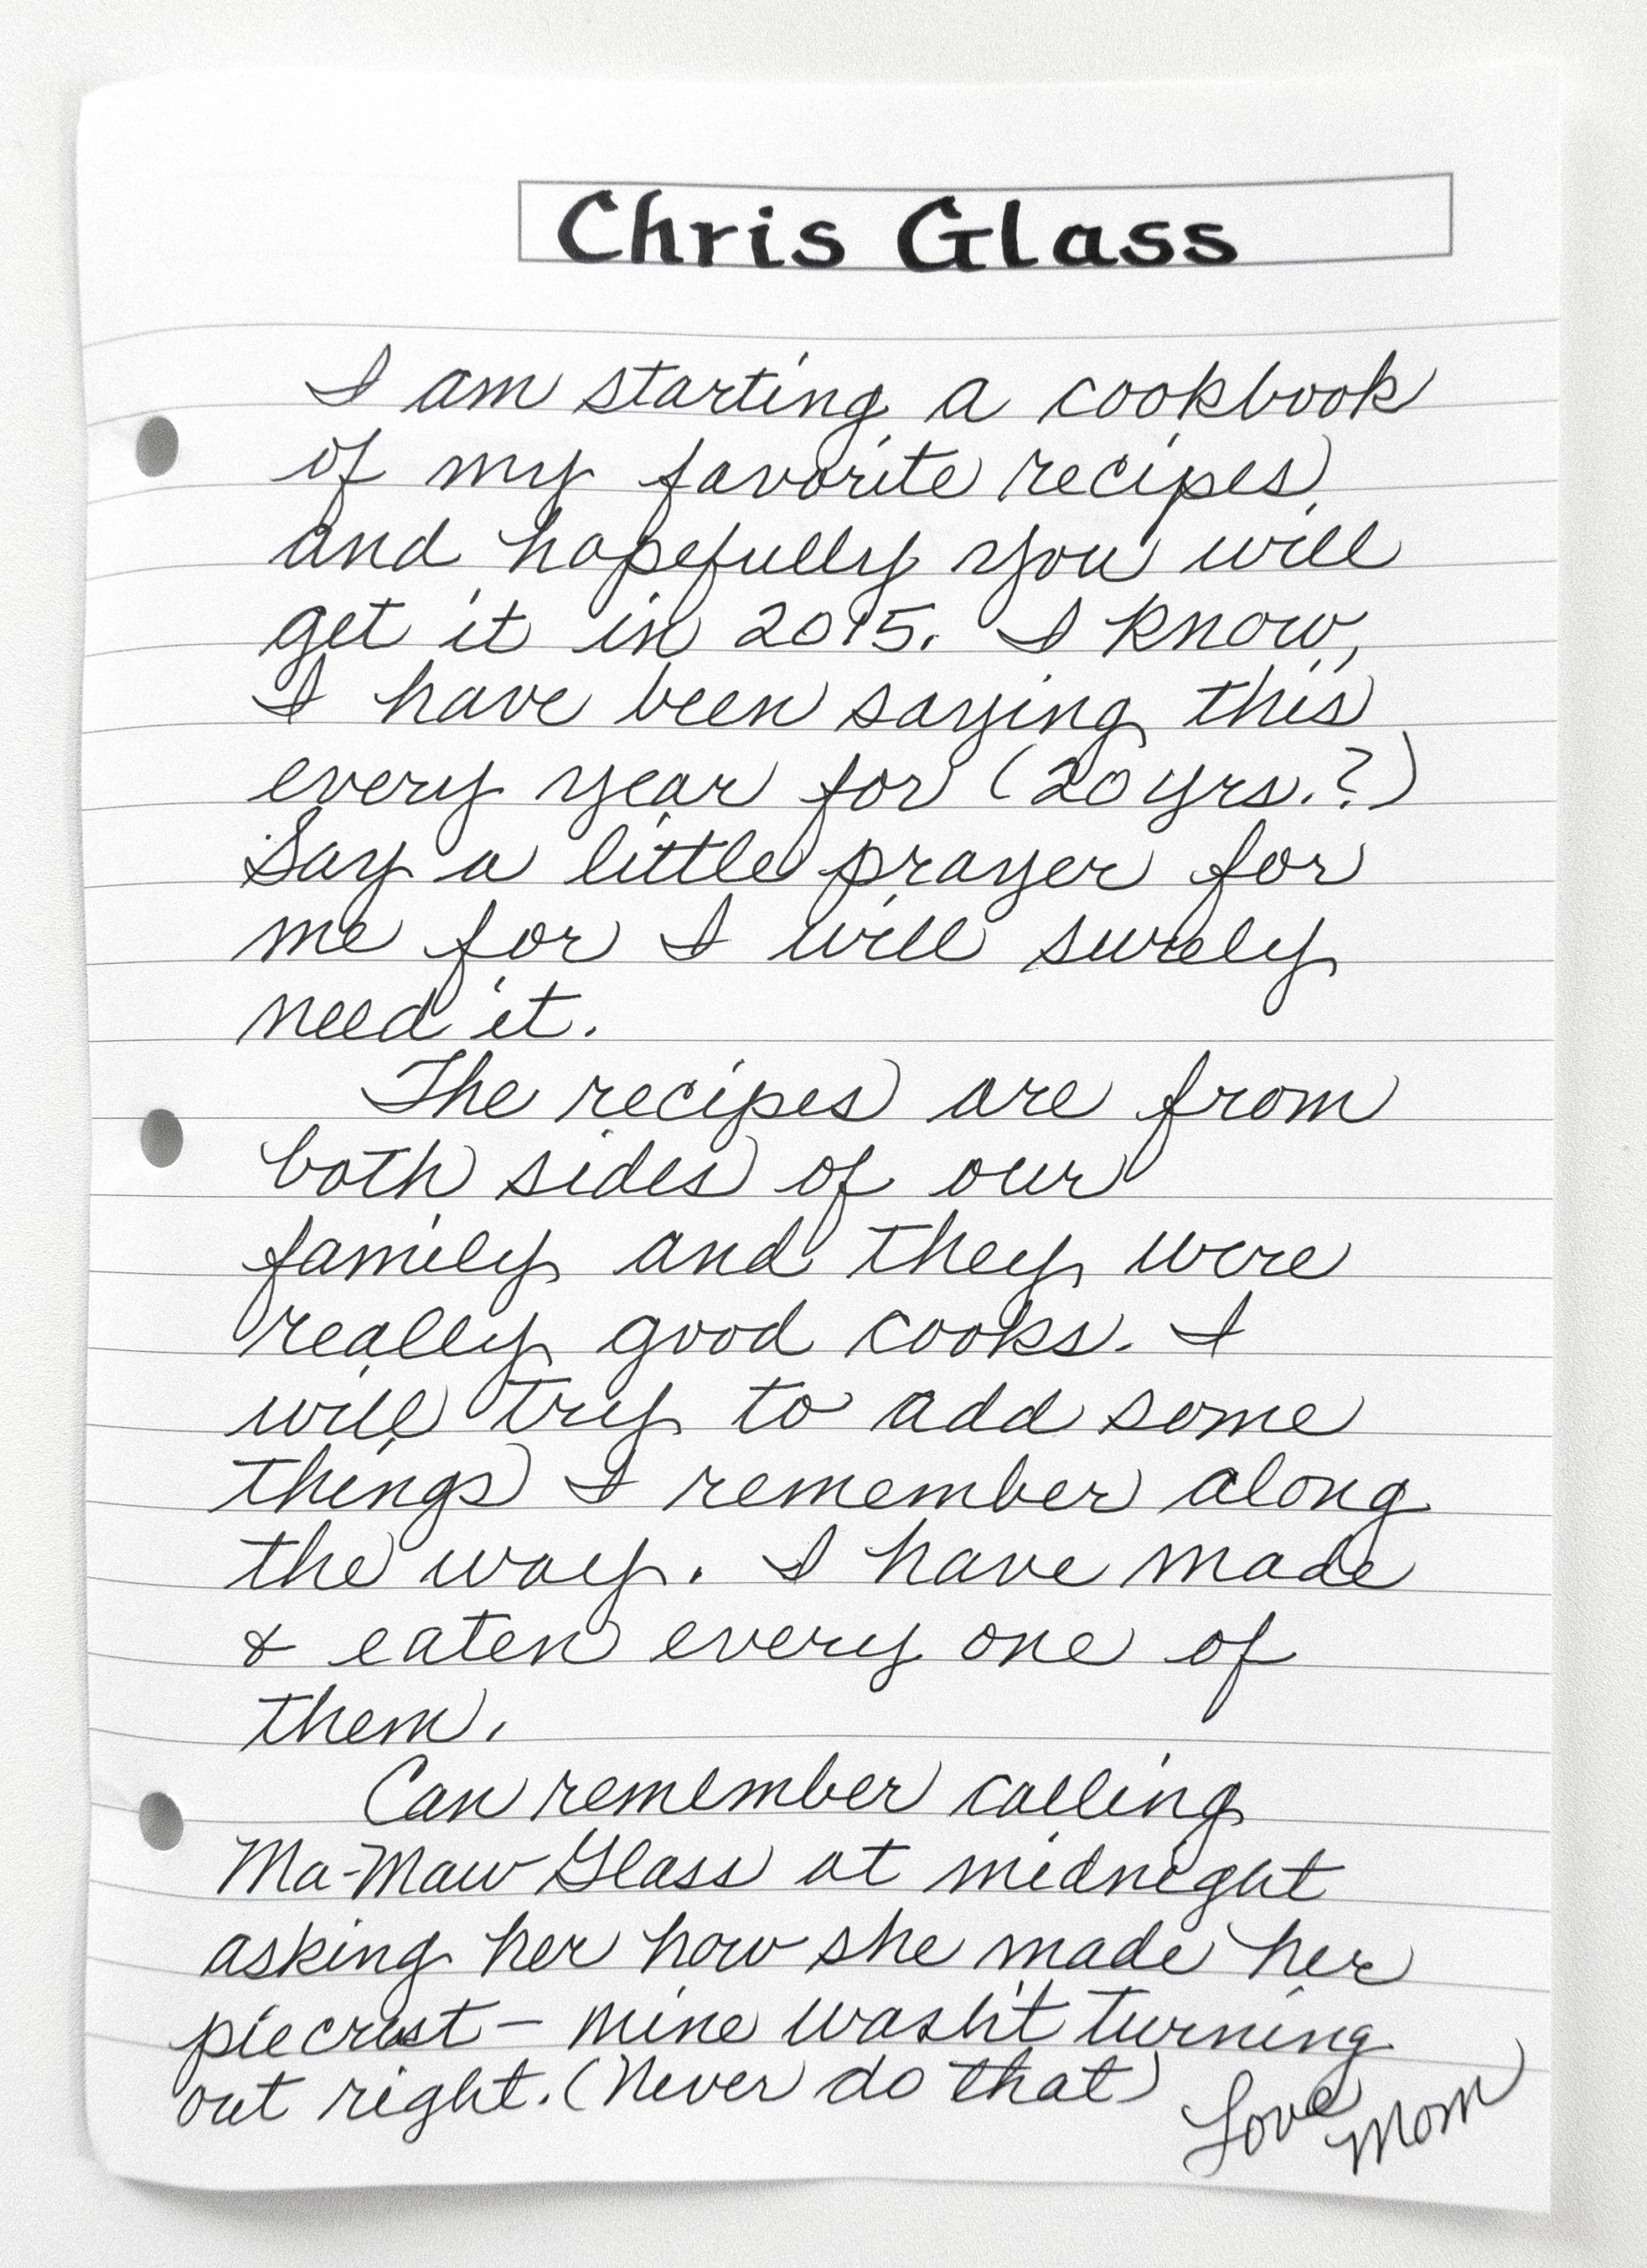 Chris Glass
I am starting a cookbook
of my favorite recipes
and hopefully you will
get it in 2015. I know,
I have been saying this
every year for (20 yrs.?)
Say a little prayer for
me for I will surely
need it.
The recipes are from
both sides of our
family and they were
really good cooks. I
will try to add some
things I remember along
the way. I have made
& eaten every one of
them.
Can remember calling
Ma-Maw Glass at midnight
asking her how she made her
piecrust - mine wasn't turning
out right. (Never do that)
Love
Mom